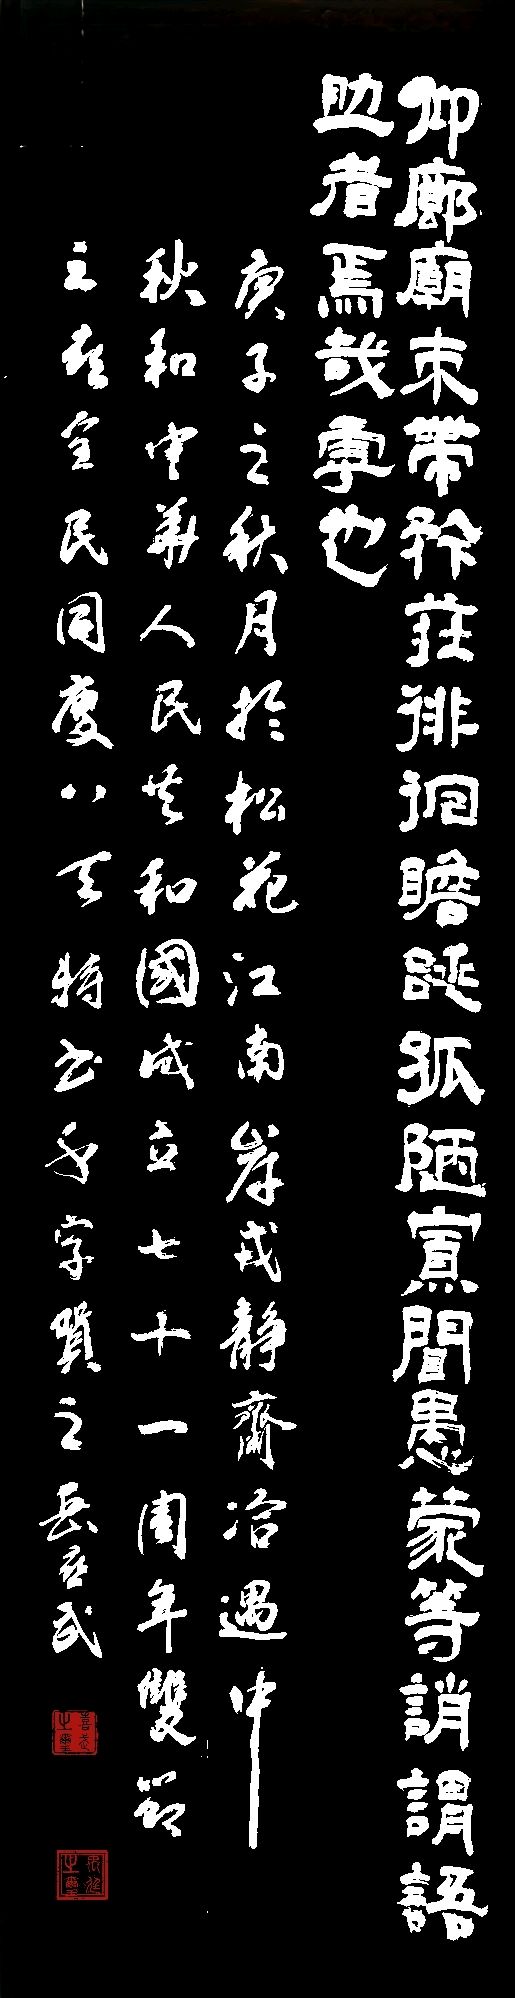 仰廊廟束帶矜莊徘徊瞻誂孤陋寡聞愚蒙等誚謂語
助者焉哉虖也
庚子之秋月於松花江南岸戎靜齋洽遇中
秋和中華人民共和國成立七十一周年雙節
之喜全民同慶八天特書千字賀之岳